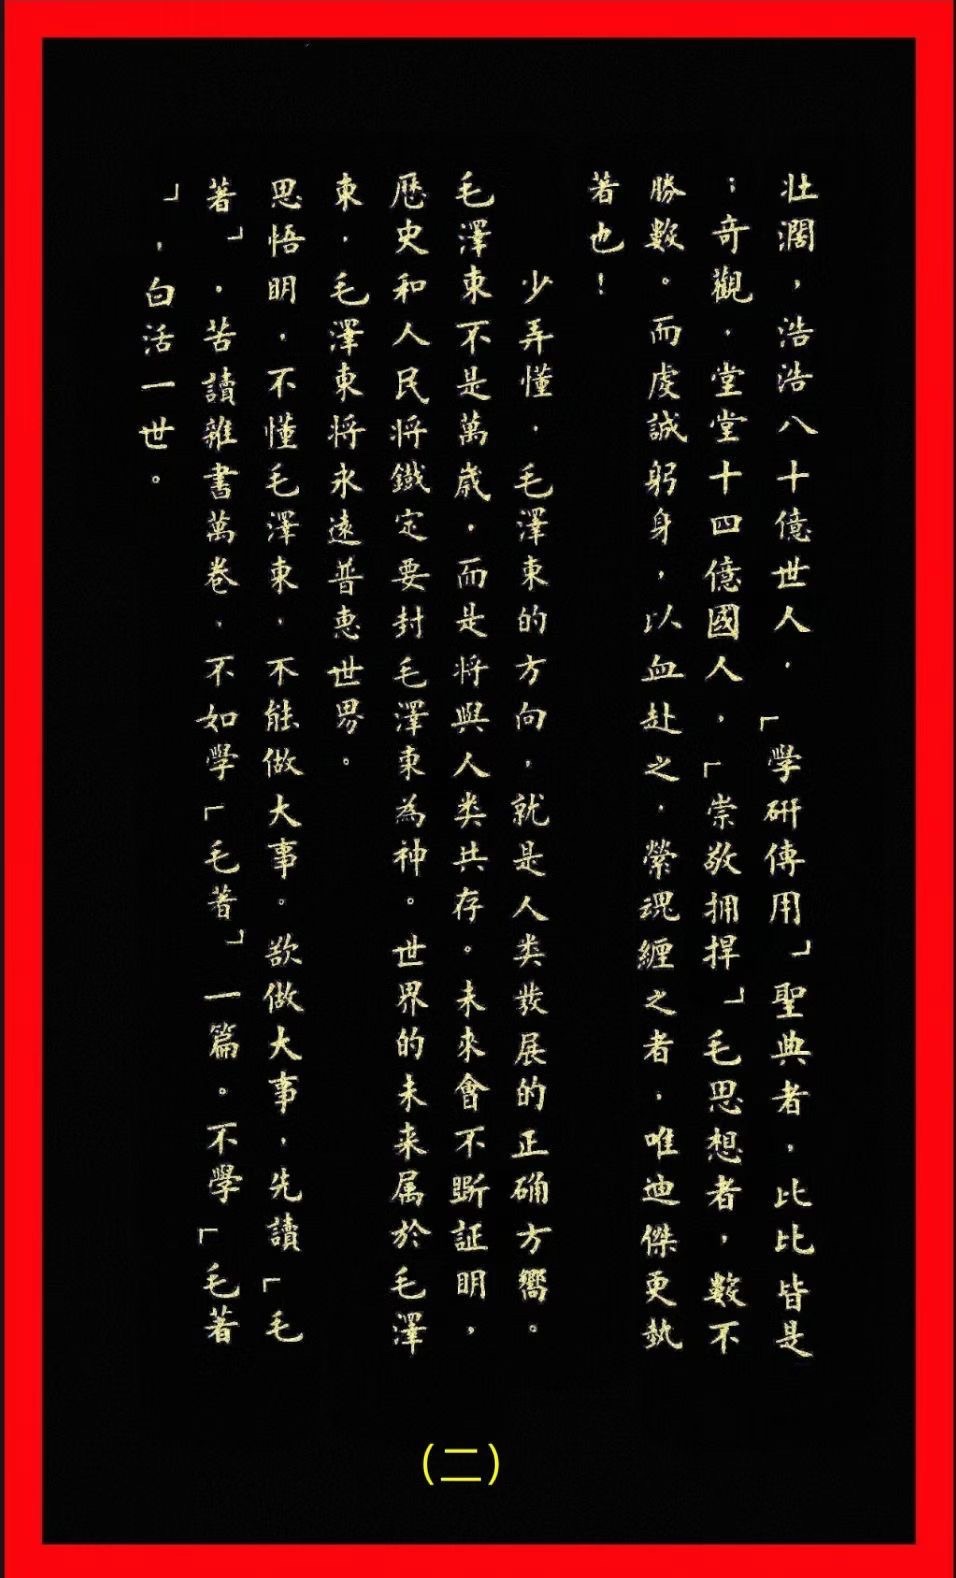 壯濶，浩浩八十億世人，「學研傳用」聖典者，比比皆是
；奇觀，堂堂十四億國人，「崇敬拥捍」毛思想者，數不
勝數。而虔誠躬身，以血赴之，縈魂纏之者，唯迪傑更執
著也！
少弄懂，毛澤東的方向，就是人类發展的正确方嚮。
毛澤東不是萬歲，而是将與人类共存。未來會不斷証明，
歷史和人民将鐵定要封毛澤東為神。世界的未来属於毛澤
東，毛澤東将永遠普惠世界。
思悟明，不懂毛澤東，不能做大事。欲做大事，先讀「毛
著」。苦讀雜書萬卷，不如學「毛著」一篇。不學「毛著
」，白活一世。
（二）